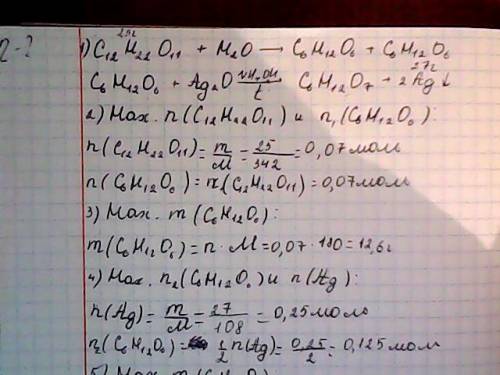 25г
1) C₁₂H₂₂O₁₁ + H₂O → C₆H₁₂O₆ + C₆H₁₂O₆
27г
C₆H₁₂O₆ + Ag₂O NH₄OH/t C₆H₁₂O₇ + 2Ag↓
2) Нах. n(C₁₂H₂₂O₁₁) и n₁(C₆H₁₂O₆):
n(C₁₂H₂₂O₁₁) = m/M = 25/342 = 0,07моль
n(C₆H₁₂O₆) = n(C₁₂H₂₂O₁₁) = 0,07моль
3) Нах. m(C₆H₁₂O₆):
m(C₆H₁₂O₆) = n · M = 0,07 · 180 = 12,6г
4) Нах. n₂(C₆H₁₂O₆) и n(Ag):
n(Ag) = m/M = 27/108 = 0,25моль
n₂(C₆H₁₂O₆) = 1/2 n(Ag) = 0,25/2 = 0,125моль
5) Нах. m